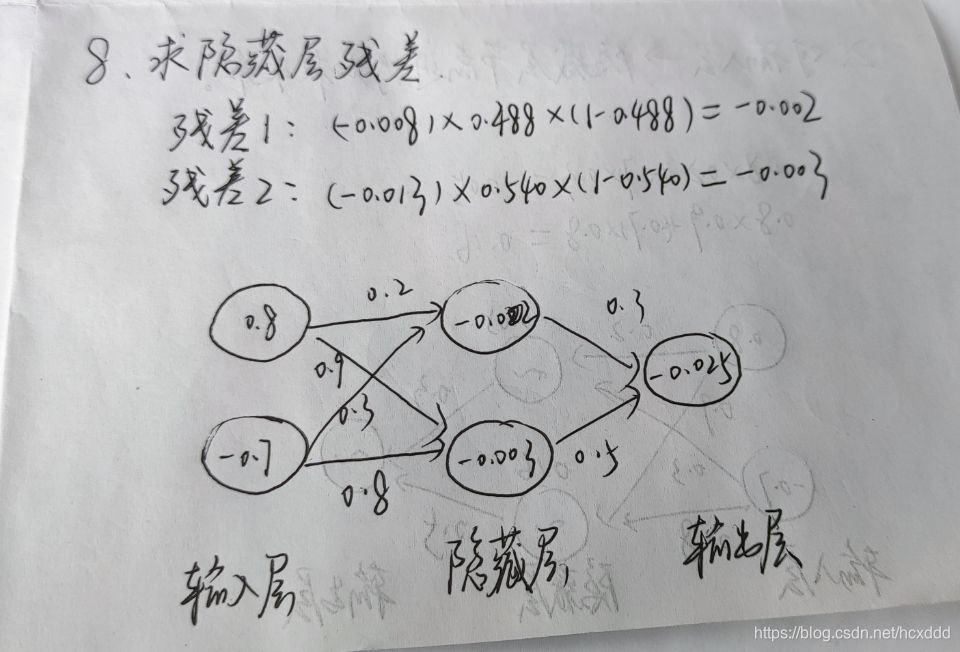 8、求隐藏层残差.
残差1: (-0.008)×0.488×(1-0.488)=-0.002
残差2: (-0.013)×0.540×(1-0.540)=-0.003
0.8 0.2 -0.002 0.3
0.9 -0.025
0.3
-0.7 0.8 -0.003 0.5
输入层 隐藏层 输出层
https://blog.csdn.net/hcxddd